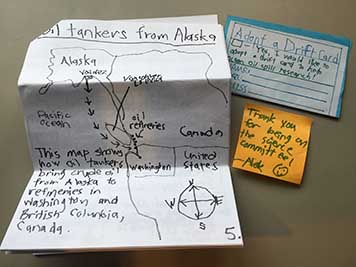 Oil tankers from Alaska
Alaska
Valdez
Pacific
Ocean
oil
refineries
Canada
This map shows
how oil tankers
bring crude oil
from Alaska to
refineries in
Washington and
British Columbia,
Canada.
Washington
United
States
N
W
E
S
5.
Adopt a Drift Card
Yes, I would like to
adopt a drift card to help
oil spill research!
Thank you
for being on
the science
committee!